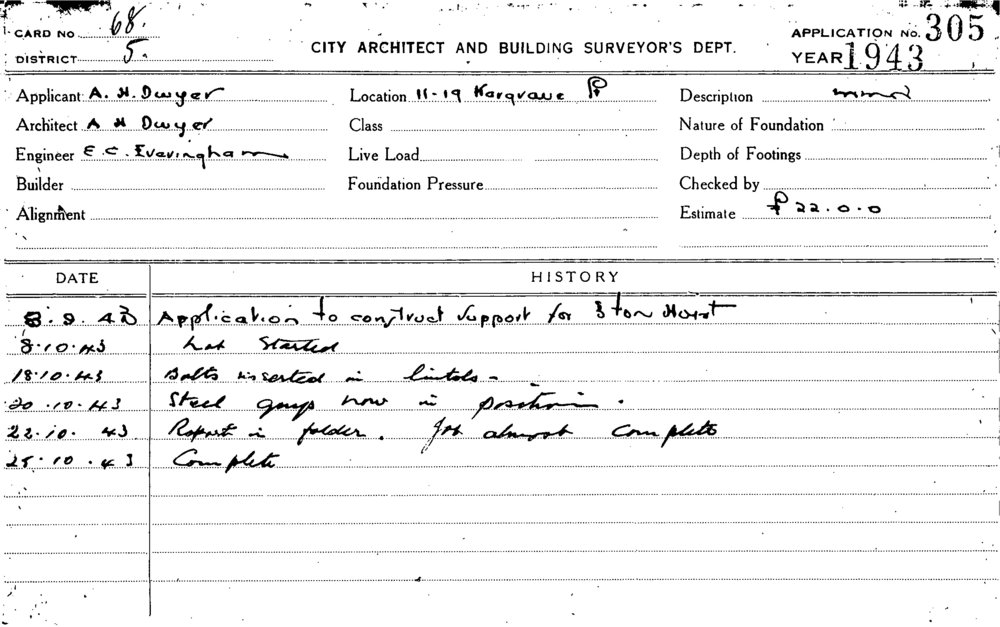 CARD NO 68.
DISTRICT 5.
CITY ARCHITECT AND BUILDING SURVEYOR'S DEPT.
APPLICATION NO. 305
YEAR 1943
Applicant A. H. Dwyer
Location 11-19 Hargrave
Description
Architect A H Dwyer
Class
Nature of Foundation
Engineer E. C. Evavingham
Live Load
Depth of Footings
Builder
Foundation Pressure
Checked by
Alignment
Estimate £ 22.0.0
DATE HISTORY
8. 9. 43 Application to construct support for 3 ton Hoist
8.10.43 Started
18.10.43 Bolts inserted in lintols -
20.10.43 Steel now in position.
22.10.43 Report in folder. Job almost complete
25.10.43 Complete